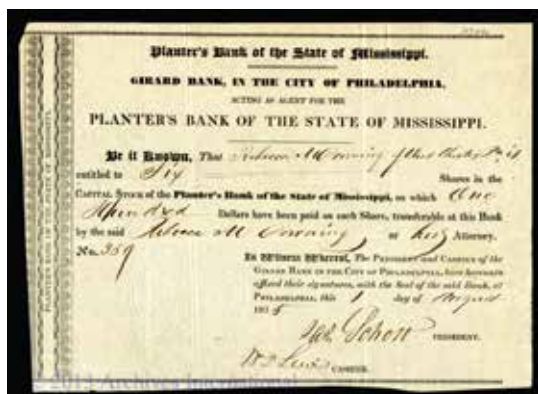 Planter's Bank of the State of Mississippi.
GIRARD BANK, IN THE CITY OF PHILADELPHIA,
ACTING AS AGENT FOR THE
PLANTER'S BANK OF THE STATE OF MISSISSIPPI.
Be it Known, That Rebecca M Downing of is
entitled to Six Shares in the
CAPITAL STOCK of the Planter's Bank of the State of Mississippi, on which One
Hundred Dollars have been paid on each Share, transferable at this Bank
by the said Rebecca M Downing or her Attorney.
No. 359
In Witness Whereof, The PRESIDENT and CASHIER of the
GIRARD BANK IN THE CITY OF PHILADELPHIA, have hereunto
affixed their signatures, with the Seal of the said Bank, at
PHILADELPHIA, this 1 day of August
1835
Jas Schott PRESIDENT.
W D Lewis CASHIER.
PLANTER'S BANK OF THE STATE OF MISSISSIPPI.
© 2013 Archives International